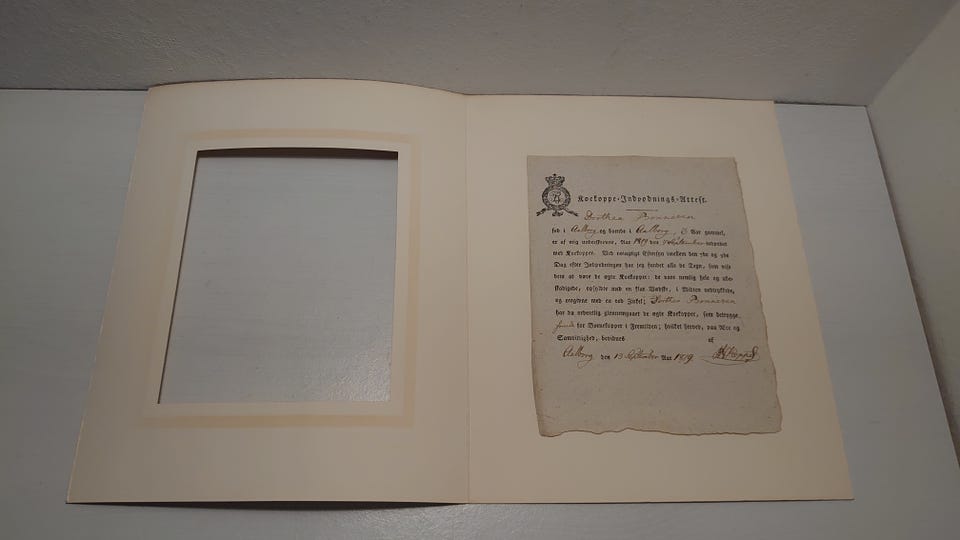 Koekoppe-Indpodnings-Attest.
Dorthea Bonnesen
fød i Aalborg og boende i Aalborg, 3 Aar gammel,
er af mig undertegnede, Aar 1819 den September indpodet
med Koekopper. Ved nøiagtigt Eftersyn imellem den 7de og 9de
Dag efter Indpodningen har jeg fundet alle de Tegn, som vise
dem at være de ægte Koekopper: de vare nemlig hele og ube-
skadigede, opfyldte med en klar Vædske, i Midten nedtrykkede,
og omgivne med en rød Zirkel; Dorthea Bonnesen
har da ordentlig giennemgaaet de ægte Koekopper, som betrygge
for Børnekopper i Fremtiden; hvilket herved, paa Ære og
Samvittighed, bevidnes af
Aalborg den 13 September Aar 1819